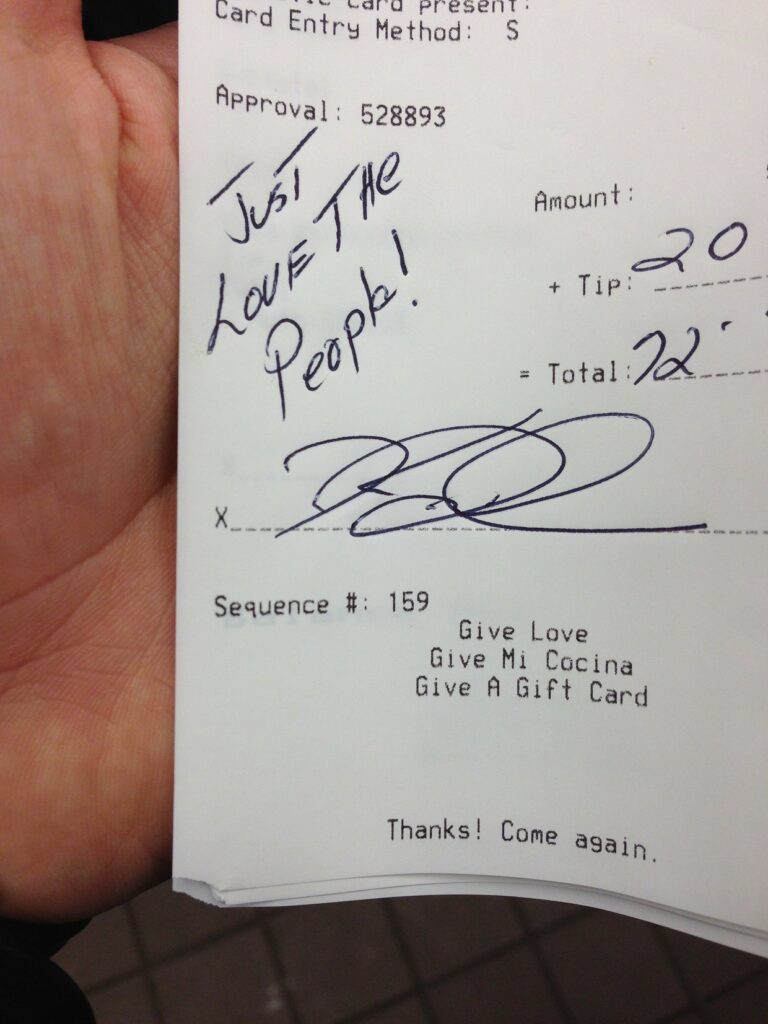 Card present:
Card Entry Method: S
Approval: 528893
JUST
LOVE THE
People!
Amount:
+ Tip: 20
= Total: 72
X
Sequence #: 159
Give Love
Give Mi Cocina
Give A Gift Card
Thanks! Come again.